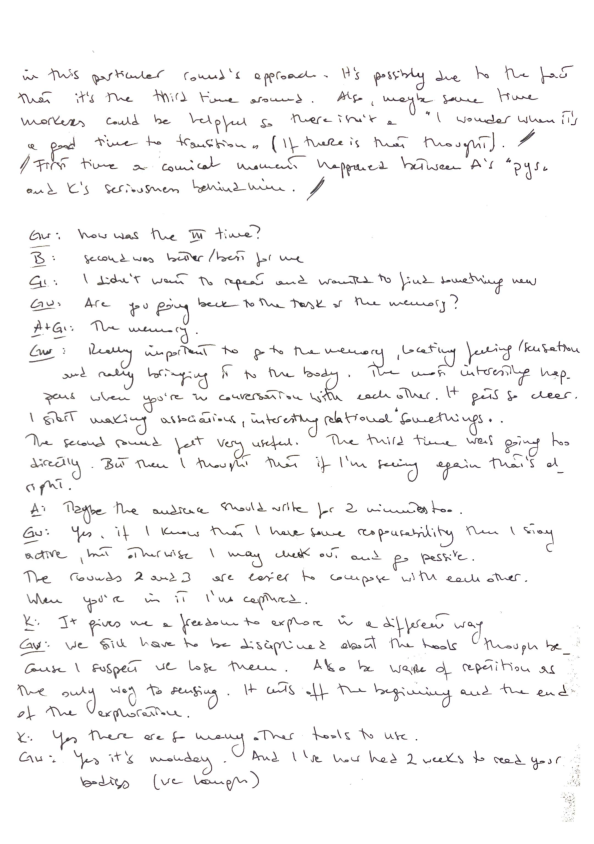 in this particular round's approach. It's possibly due to the fact
that it's the third time around. Also, maybe some time
markers could be helpful so there isn't a "I wonder when it's
a good time to transition" (If there is that thought). //
// First time a comical moment happened between A's "pys"
and K's seriousness behind him. //
GW: how was the III time?
B: second was better/best for me
G1: I didn't want to repeat and wanted to find something new
GW: Are you going back to the task or the memory?
A+G1: The memory.
GW: Really important to go to the memory, locating feeling/sensation
and really bringing it to the body. The most interesting hap-
pens when you're in conversation with each other. It gets so clear.
I start making associations, interesting relational "somethings".
The second round felt very useful. The third time was going too
directly. But then I thought that if I'm seeing again that's al-
right.
A: Maybe the audience should write for 2 minutes too.
GW: Yes, if I know that I have some responsability then I stay
active, but otherwise I may check out and go passive.
The rounds 2 and 3 are easier to compose with each other.
When you're in it I'm captured.
K: It gives me a freedom to explore in a different way
GW: We still have to be disciplined about the tools though be-
cause I suspect we lose them. Also be aware of repetition as
the only way to sensing. It cuts off the beginning and the end
of the exploration.
K: Yes there are so many other tools to use.
GW: Yes it's monday. And I've now had 2 weeks to read your
bodies (we laugh)